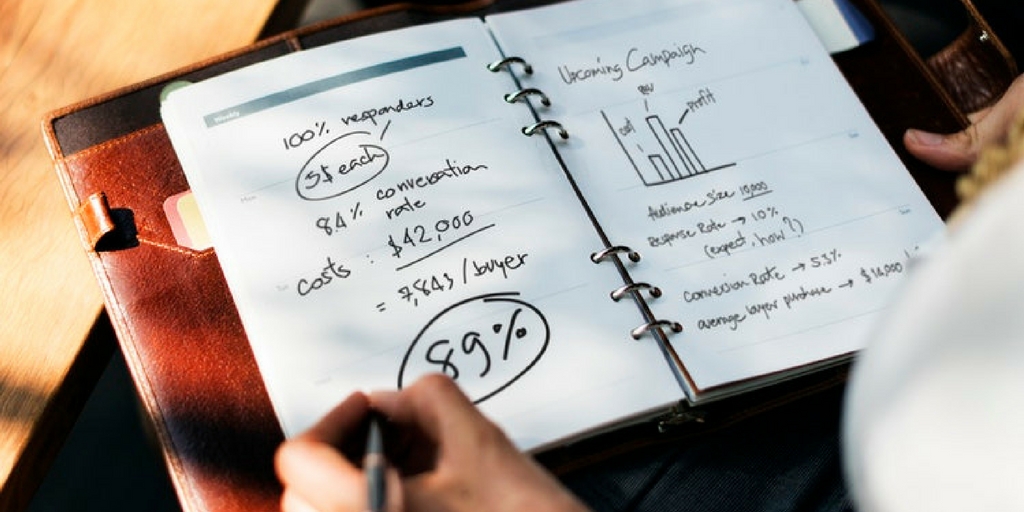 Weekly
100% responders
5$ each
84% conversation
rate
costs : $42,000
= 7,843/buyer
89%
Upcoming Campaign
cost
rev
profit
Audience size 10,000
Response Rate → 10%
(expect, how?)
Conversion Rate → 53%
average buyer purchase → $14,000